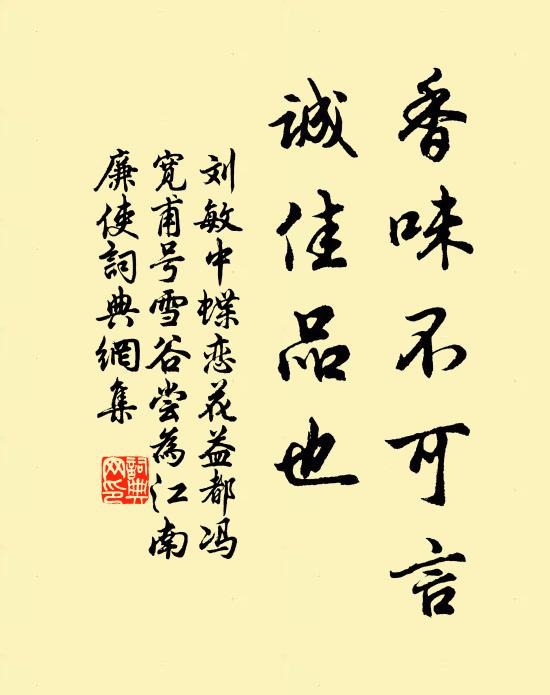 香味不可言
誠佳品也
刘敏中蝶恋花益都冯
寛甫号雪谷尝為江南
廉使詞典網集
詞典
网印